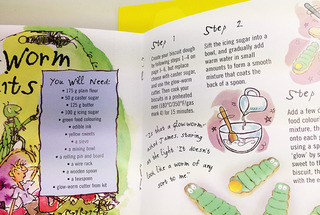 Worm
You Will Need:
• 175 g plain flour
• 50 g caster sugar
• 125 g butter
• 100 g icing sugar
• green food colouring
• edible ink
• yellow sweets
• a sieve
• a mixing bowl
• a rolling pin and board
• a wire rack
• a wooden spoon
• a teaspoon
• glow-worm cutter from kit
Step 1
Create your biscuit dough
by following steps 1–4 on
but replace
cheese with caster sugar,
and use the glow-worm
cutter. Then cook your
biscuits in a preheated
oven (180°C/350°F/gas
mark 4) for 15 minutes.
"Is that a glow-worm?"
what James, staring
at the light. "It doesn't
look like a worm of any
sort to me."
Step 2
Sift the icing sugar into a
bowl, and gradually add
warm water in small
amounts to form a smooth
mixture that coats the
back of a spoon.
Step
Add a few
food colour
mixture, the
onto each
using a sp
'glow' by s
sweet to th
biscuit, th
with the e